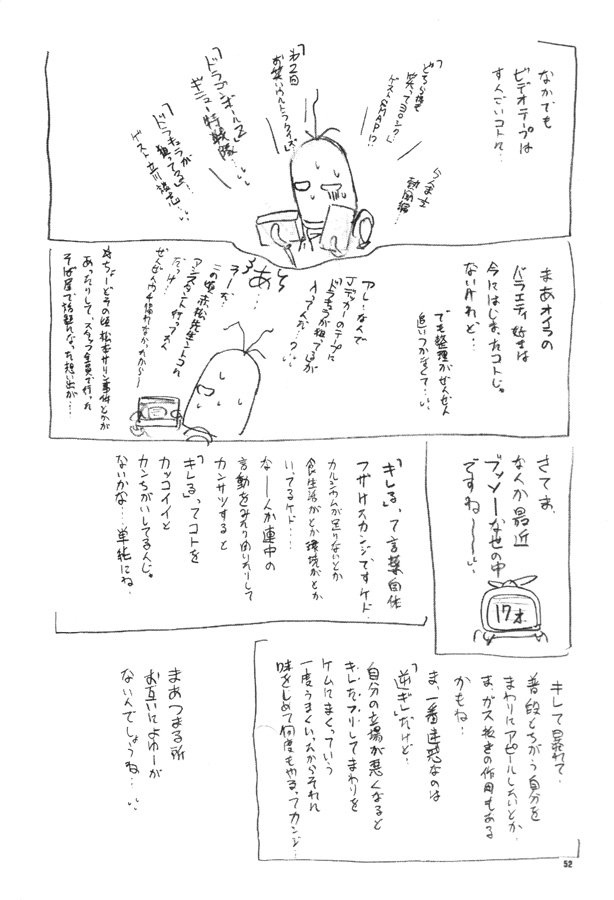 なかでも
ビデオテープは
すんごいコトに…
「どちら様も
笑ってヨロシク」
ゲストSMAP!?
らんま½
動画編…
「第2回
お笑いウルトラクイズ」
「ドラゴンボールZ
ギニュー特戦隊…
「ドラキュラが
狙ってる」
まあオイラの
バラエティ好きは
今にはじまったコトじゃ
ないけれど…
でも整理がぜんぜん
追いつかなくて…
アレ…なんで
Jデッカーのテープに
ドラキュラが狙ってるが
入ってんだ…?
あっそーか…
この頃赤松先生ントコに
アシスタント行ってた
※ちょーどその頃松本サリン事件とかが
あったりして、スタッフ全員で行った
そば屋で話題になった想い出が…
さてま、
なんか最近
ブッソーな世の中
ですね〜〜…
17才
「キレる」って言葉自体
フザけたカンジですケド…
カルシウムが足りないとか
食生活がとか環境がとか
いってるケド…
な――んか連中の
言動をみたり聞いたりして
カンサツすると
「キレる」ってコトを
カッコイイと
カンちがいしてるんじゃ
ないかな…単純にね…
キレて暴れて、
普段とちがう自分を
まわりにアピールしたいとか、
まぁガス抜きの作用もある
かもね…
ま、一番迷惑なのは
「逆ギレ」だけど…
自分の立場が悪くなると
キレたフリしてまわりを
ケムにまくっていう
一度うまくいったからそれに
味をしめて何度もやるってカンジ…
まあつまる所
お互いによゆーが
ないんでしょうね…
52